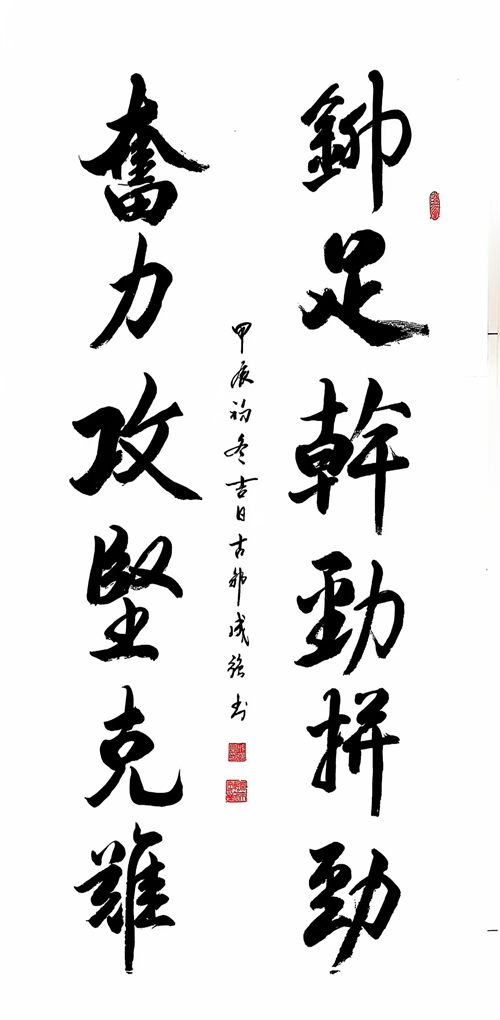 鉚足幹勁拼勁
奮力攻堅克難
甲辰初冬吉日古